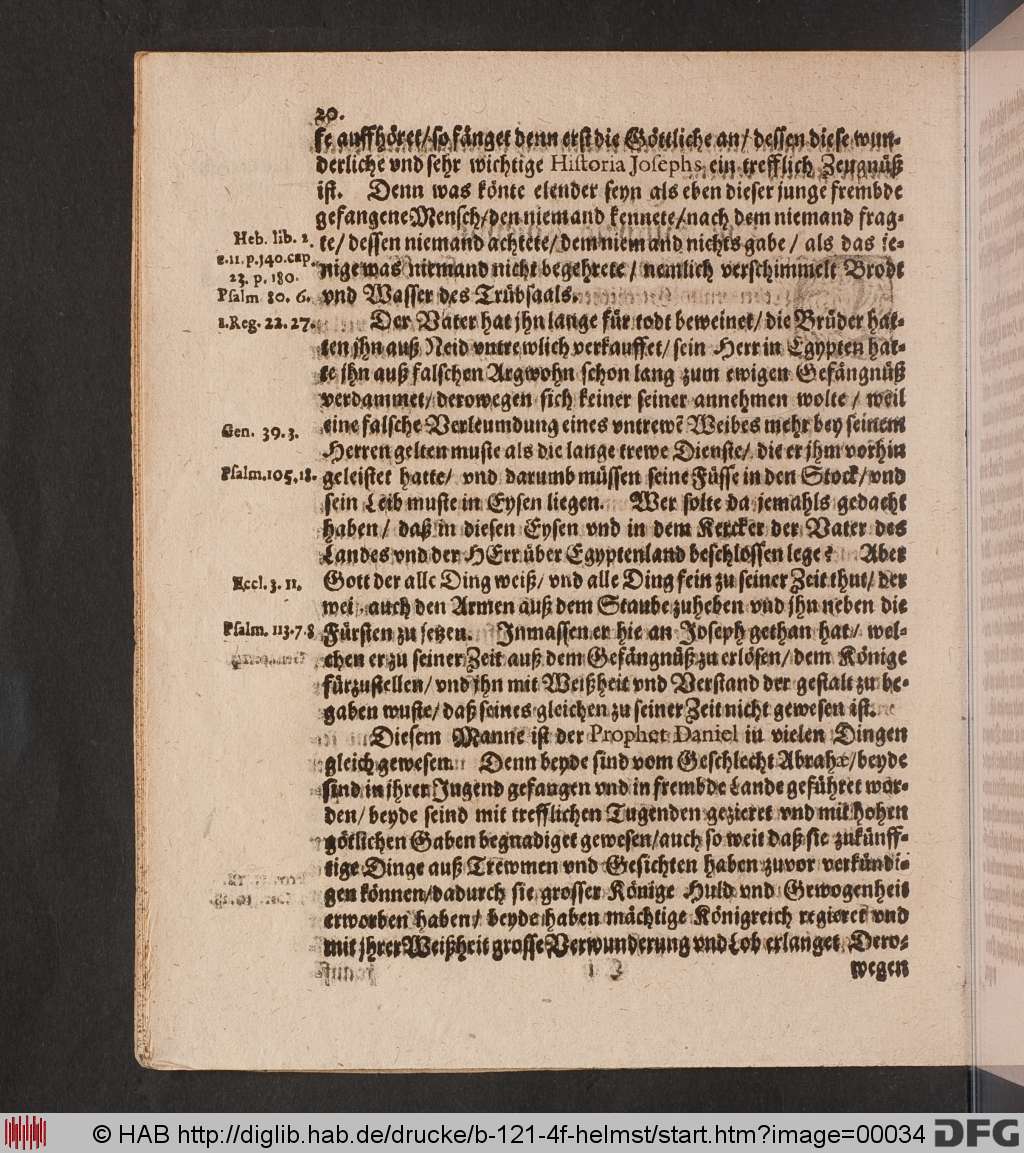 20.
ke auffhöret/so fänget denn erst die Göttliche an/ dessen diese wun-
derliche vnd sehr wichtige Historia Josephs ein trefflich Zeugnüß
ist. Denn was könte elender seyn als eben dieser junge frembde
gefangene Mensch/den niemand kennete/nach dem niemand frag-
Heb. lib. 2. te/ dessen niemand achtete/ dem niemand nichts gabe/ als das je-
c.11. p.140. cap. nige was niemand nicht begehrete/ nemlich verschimmelt Brodt
23. p. 180.
Psalm 80. 6. vnd Wasser des Trübsaals.
1.Reg. 22. 27. Der Vater hat jhn lange für todt beweinet/ die Brüder hat-
ten jhn auß Neid vntrewlich verkauffet/ sein Herr in Egypten hat-
te jhn auß falschen Argwohn schon lang zum ewigen Gefängnüß
verdammet/ derowegen sich keiner seiner annehmen wolte/ weil
Gen. 39.3. eine falsche Verleumdung eines vntrewẽ Weibes mehr bey seinem
Herren gelten muste als die lange trewe Dienste/ die er jhm vorhin
Psalm.105.18. geleistet hatte/ vnd darumb müssen seine Füsse in den Stock/ vnd
sein Leib muste in Eysen liegen. Wer solte da jemahls gedacht
haben/ daß in diesen Eysen vnd in dem Kercker der Vater des
Landes vnd der HErr über Egyptenland beschlossen lege? Aber
Eccl. 3. 11. Gott der alle Ding weiß/ vnd alle Ding fein zu seiner Zeit thut/ der
wei auch den Armen auß dem Staube zuheben vnd jhn neben die
Psalm. 113.7.8 Fürsten zu setzen. Inmassen er hie an Joseph gethan hat/ wel-
chen er zu seiner Zeit auß dem Gefängnüß zu erlösen/ dem Könige
fürzustellen/ vnd jhn mit Weißheit vnd Verstand der gestalt zu be-
gaben wuste/ daß seines gleichen zu seiner Zeit nicht gewesen ist.
Diesem Manne ist der Prophet Daniel in vielen Dingen
gleich gewesen. Denn beyde sind vom Geschlecht Abrahæ/beyde
sind in jhrer Jugend gefangen vnd in frembde Lande geführet wor-
den/ beyde seind mit trefflichen Tugenden gezieret vnd mit hohen
götlichen Gaben begnadiget gewesen/auch so weit daß sie zukünff-
tige Dinge auß Trewmen vnd Gesichten haben zuvor verkündi-
gen können/dadurch sie grosser Könige Huld vnd Gewogenheit
erworben haben/ beyde haben mächtige Königreich regieret vnd
mit jhrer Weißheit grosse Verwunderung vnd Lob erlanget. Dero-
wegen
© HAB http://diglib.hab.de/drucke/b-121-4f-helmst/start.htm?image=00034 DFG